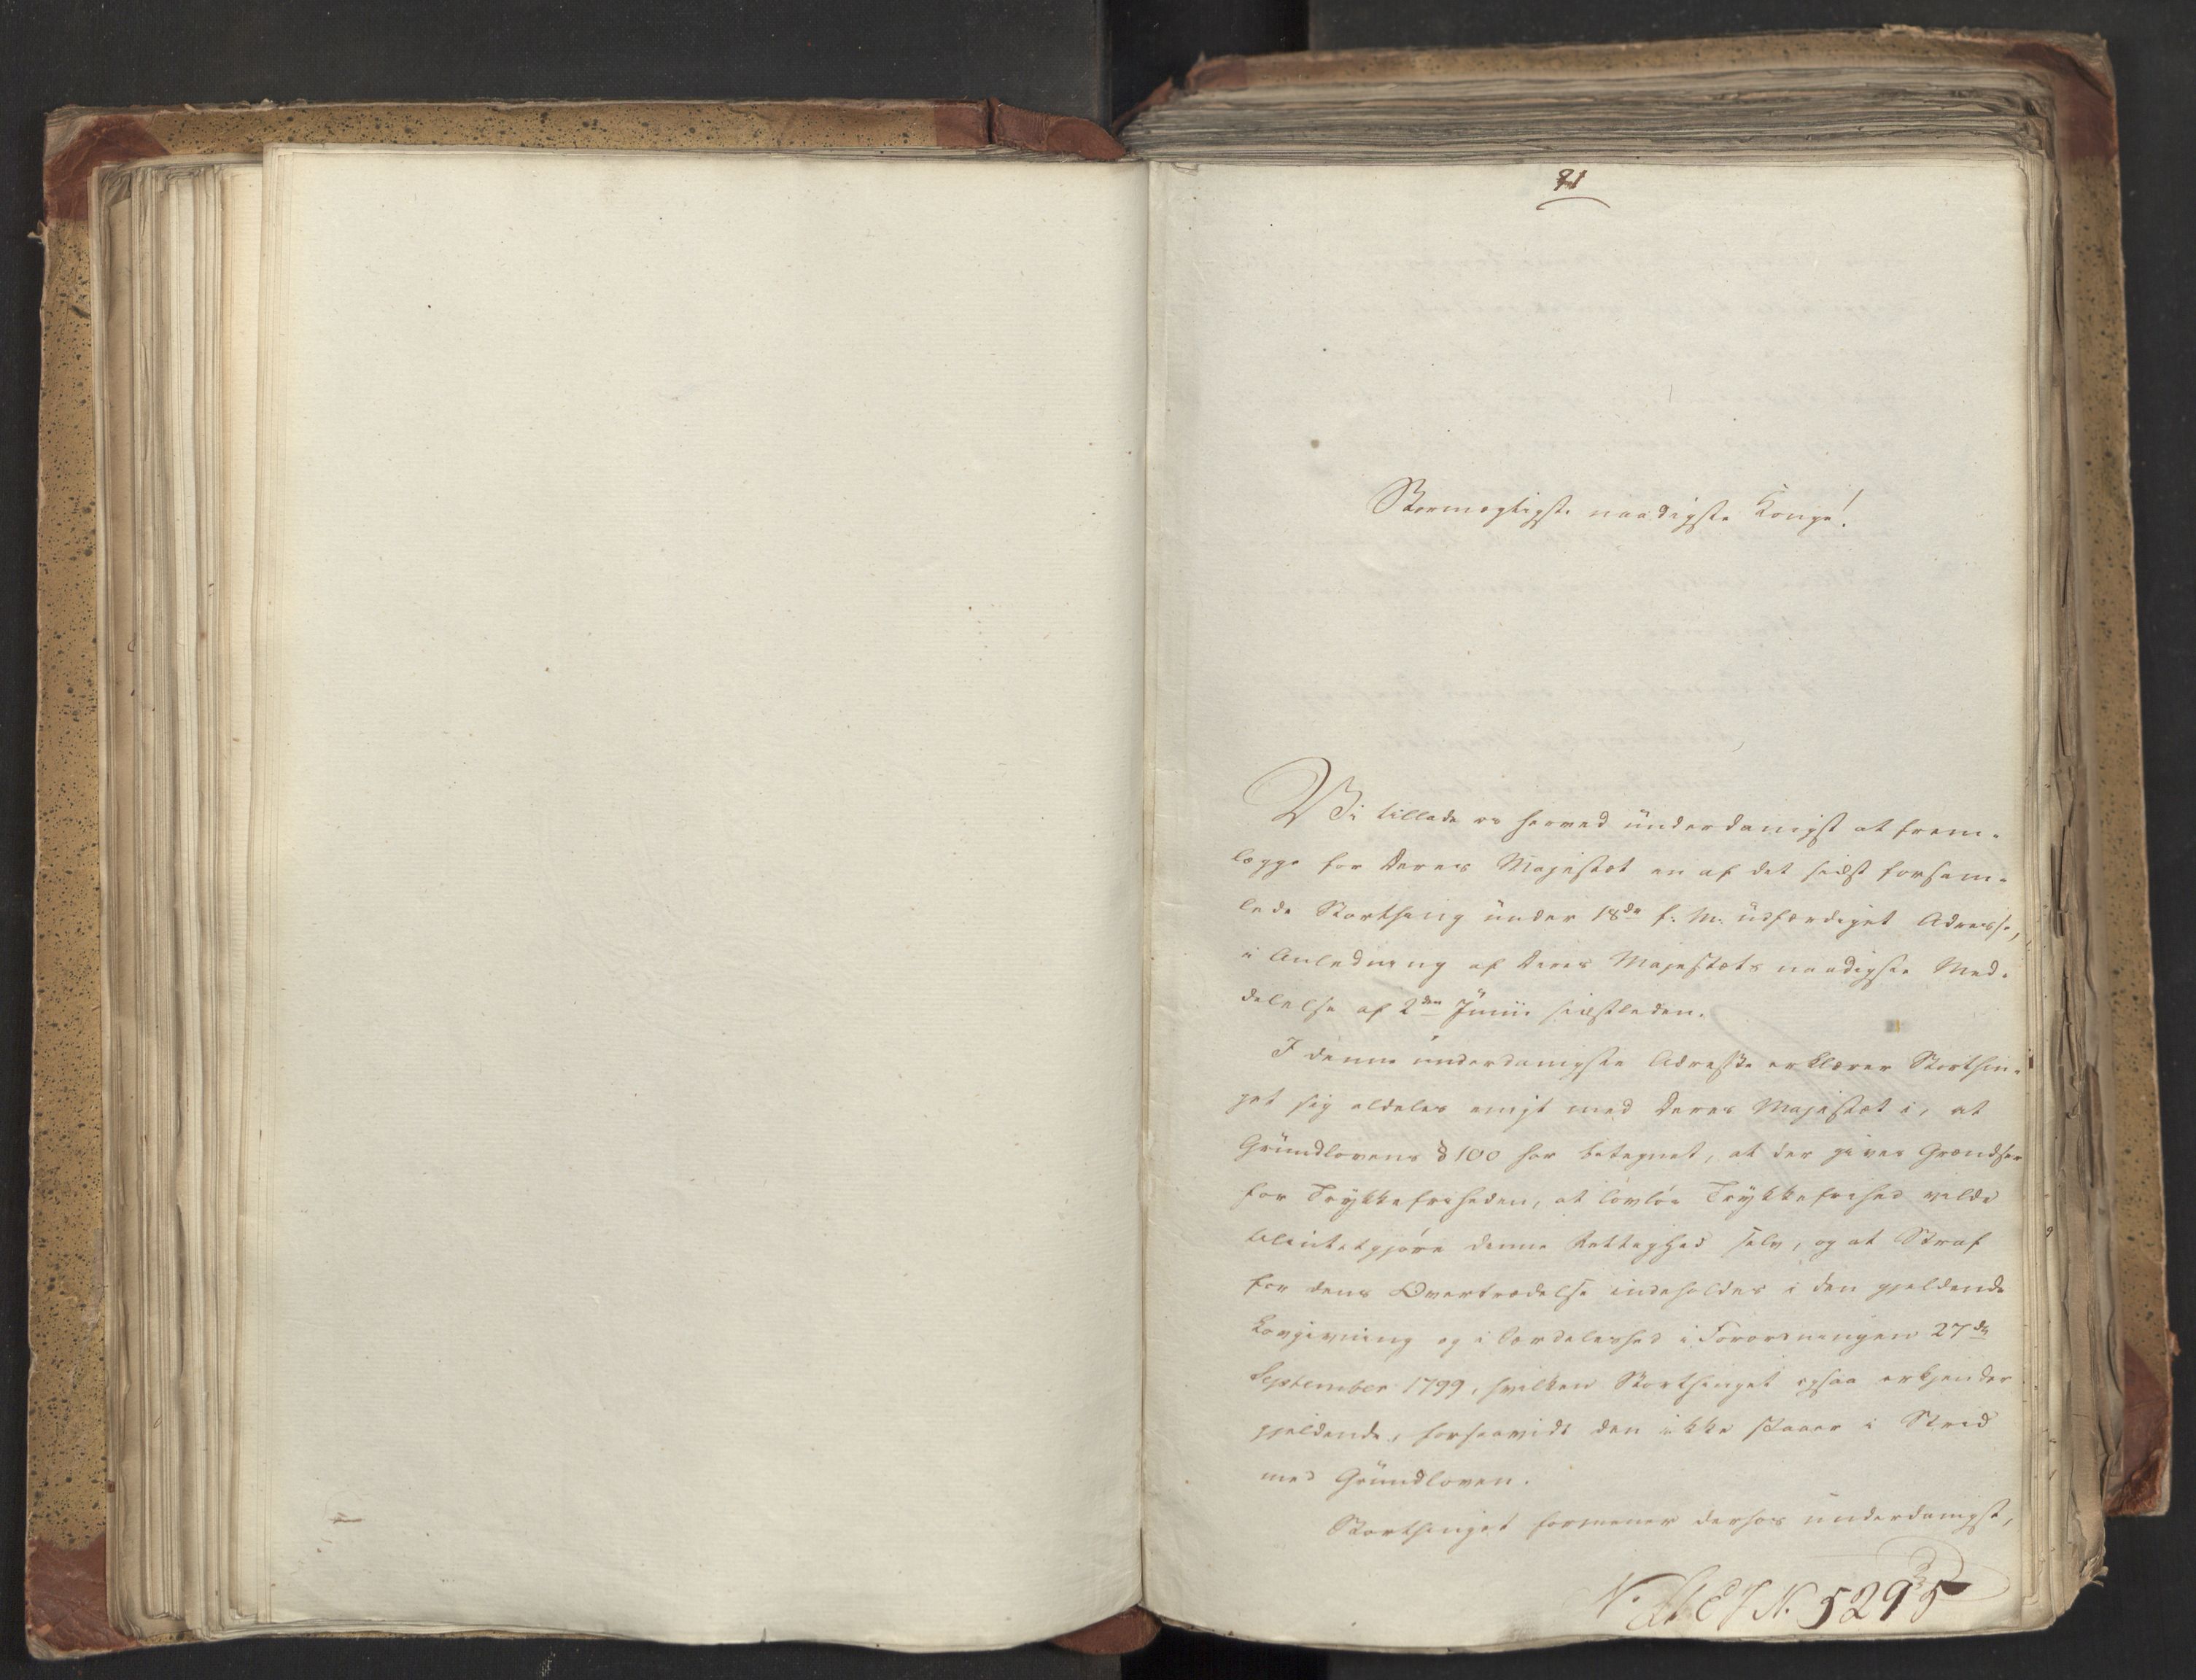 21
Stormægtigste naadigste Konge!
Vi tillade os herved ünderdanigst at frem-
lægge for Deres Majestæt en af det sidst forsam-
lede Storthing ünder 18de f: M: üdfærdiget Adresse,
i Anledning af Deres Majestæts naadigste Med-
delelse af 2den Junii sidstleden.
I denne ünderdanigste Adresse erklærer Storthin-
get sig aldeles enigt med Deres Majestæt i, at
Gründlovens § 100 har betegnet, at der gives Grændser
for Trykkefriheden, at lovløs Trykkefrihed vilde
tilintetgjøre denne Rettighed selv, og at Straf
for dens Overtrædelse indeholdes i den gjeldende
Lovgivning og i Særdeleshed i Forordningen 27de
September 1799, hvilken Storthinget ogsaa erkjender
gjeldende, forsaavidt den ikke staaer i Strid
med Gründloven.
Storthinget formener derhos ünderdanigst,
N. 5295